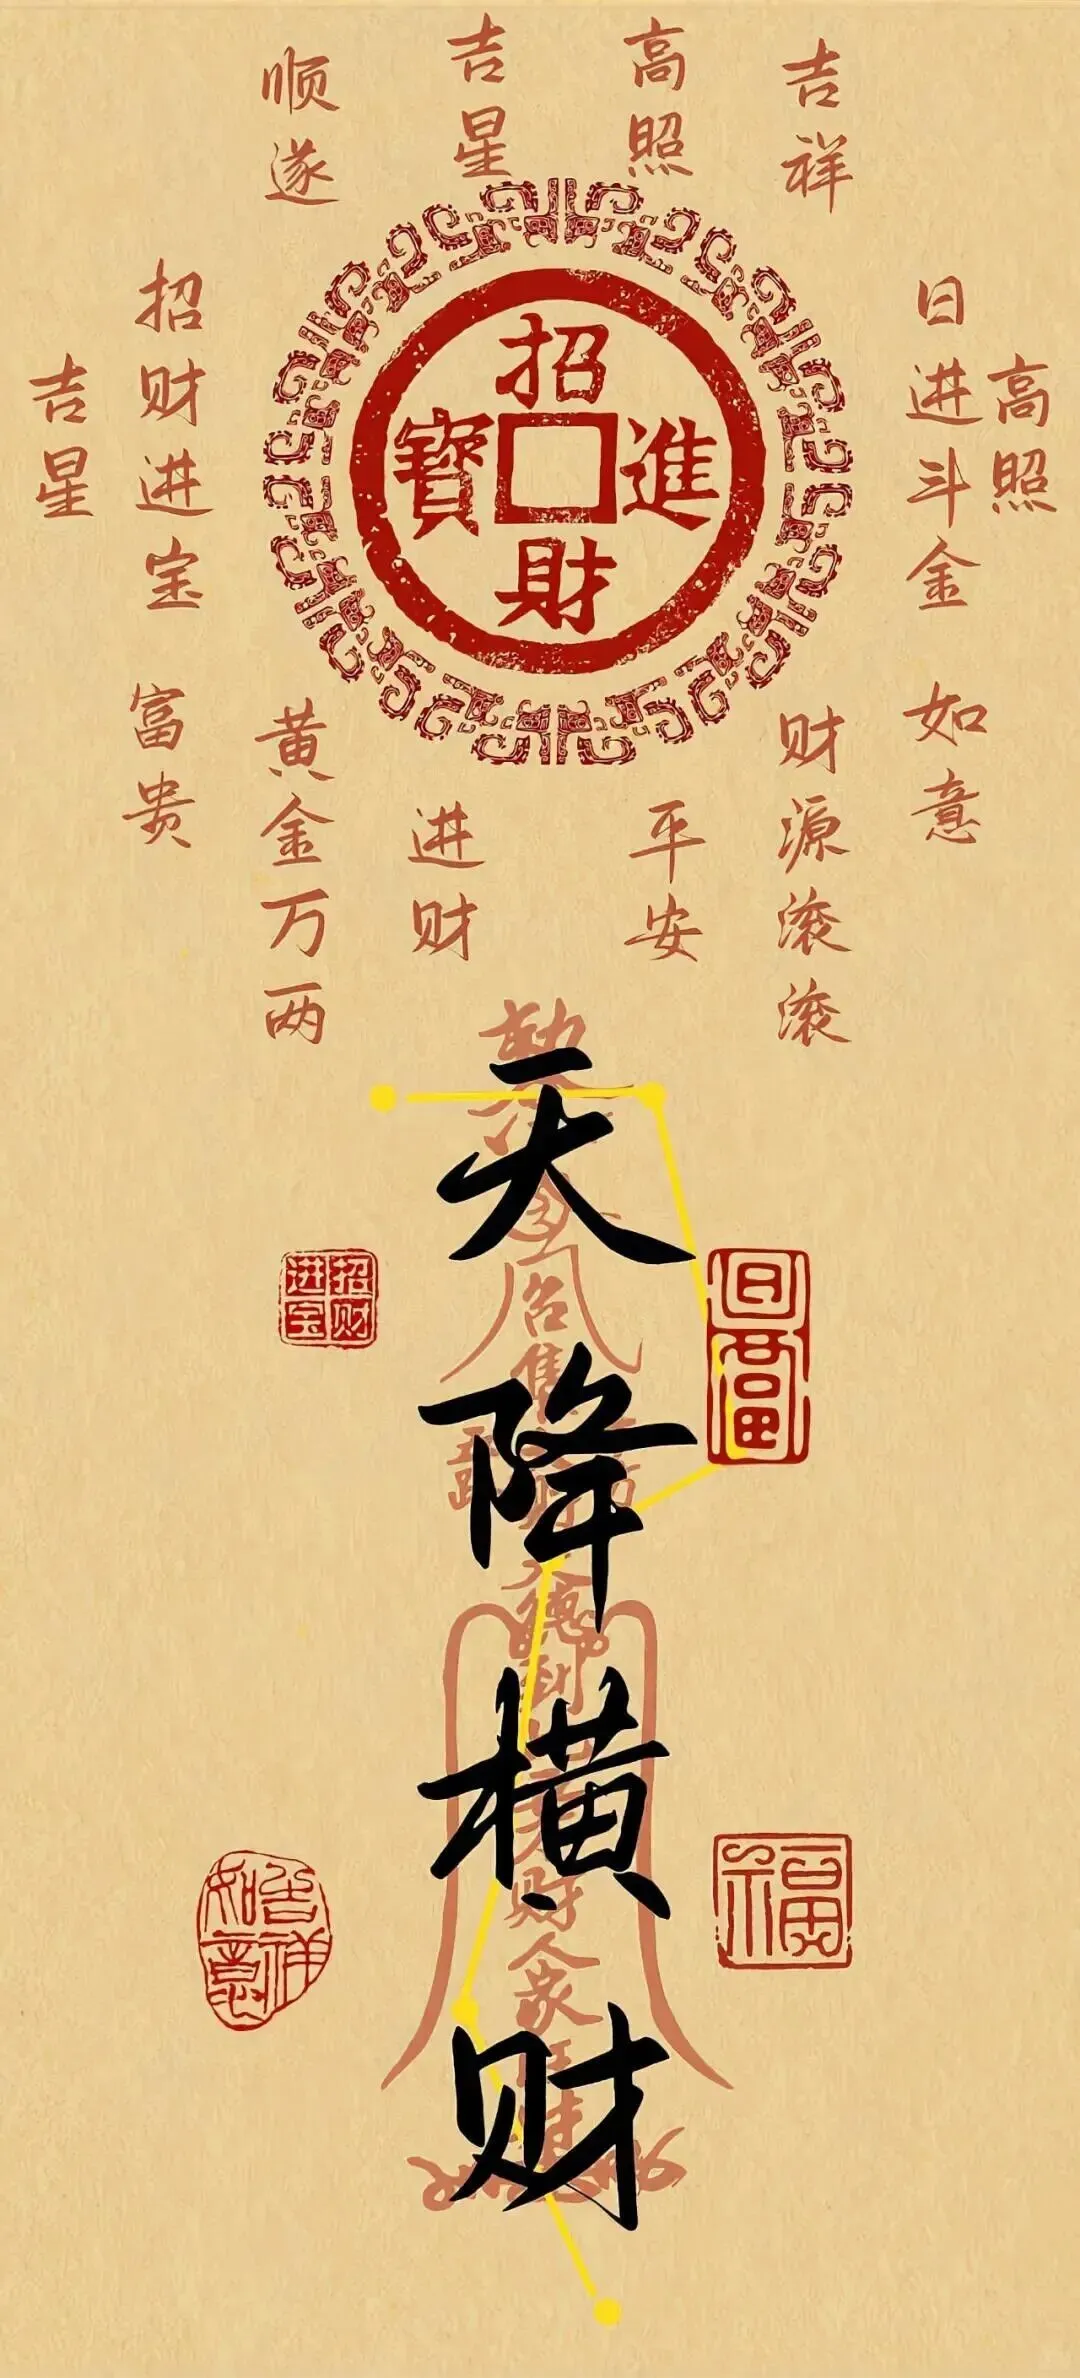 顺遂
吉星
高照
吉祥
吉星
招财进宝
招進財寶
日进斗金
高照
富贵
黄金万两
进财
平安
财源滚滚
如意
天降横财
招财进宝
日富
吉祥如意
福